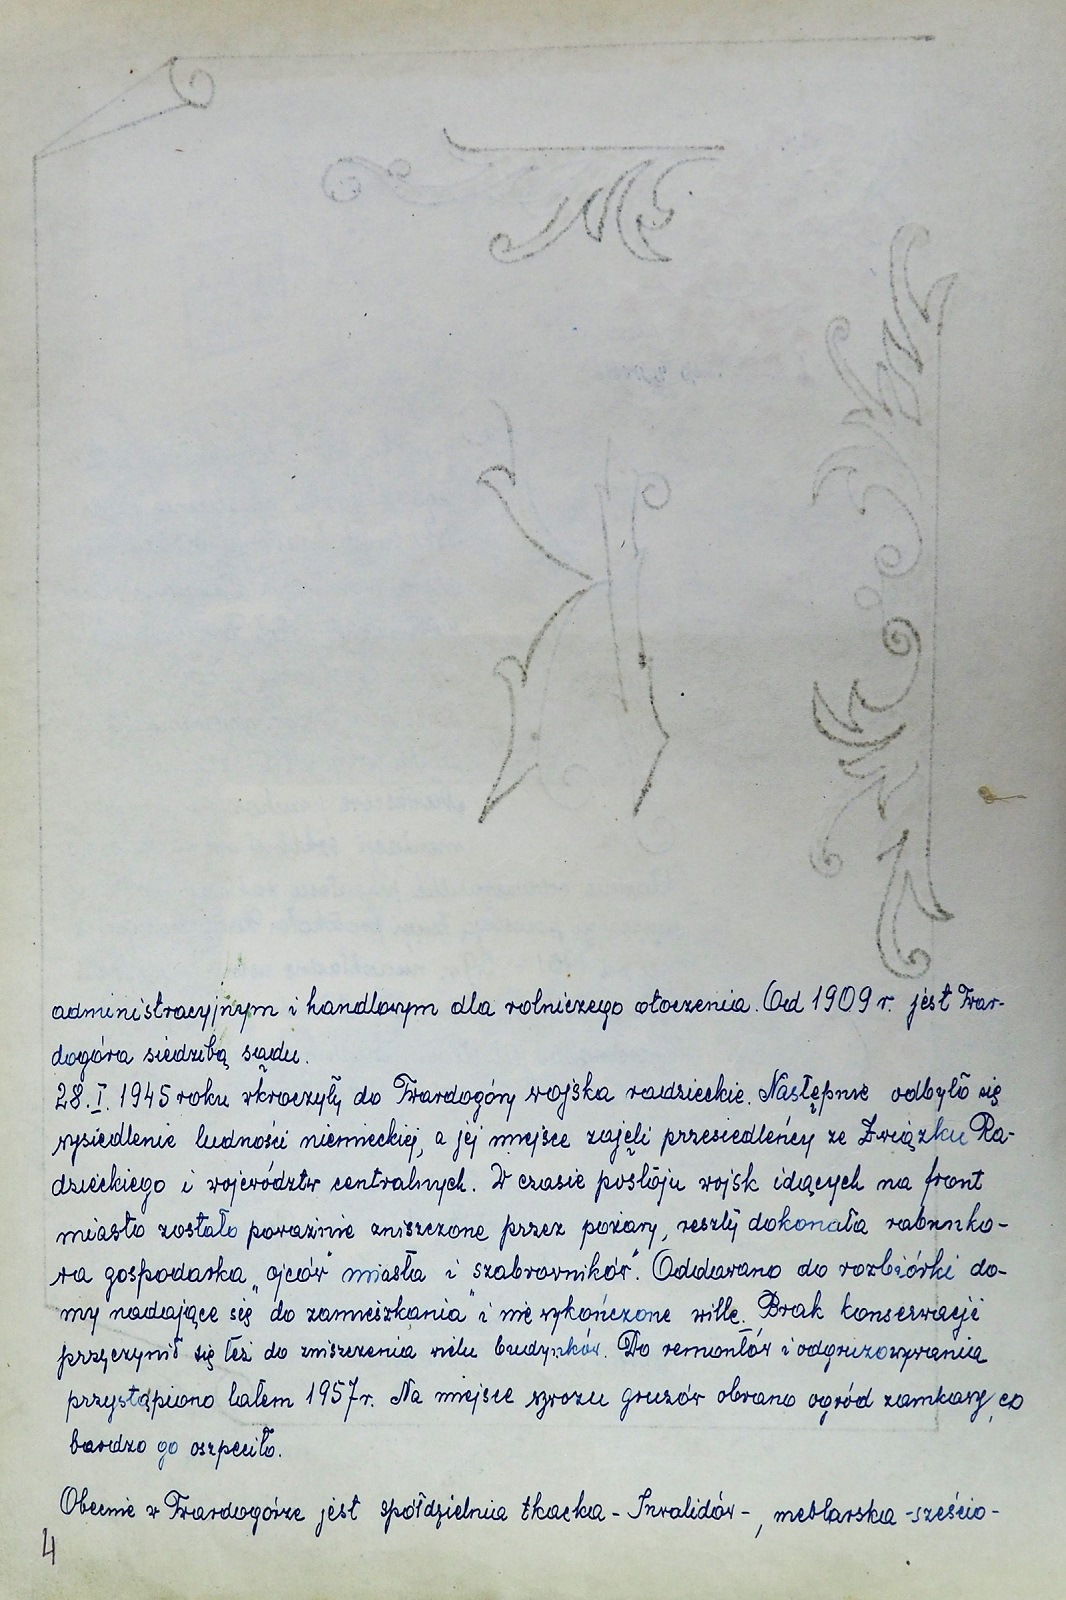 administracyjnym i handlowym dla rolniczego otoczenia. Od 1909 r. jest Twar-
dogóra siedzibą sądu.
28. I. 1945 roku wkroczyły do Twardogóry wojska radzieckie. Następnie odbyło się
wysiedlenie ludności niemieckiej, a jej miejsce zajęli przesiedleńcy ze Związku Ra-
dzieckiego i województw centralnych. W czasie postoju wojsk idących na front
miasto zostało poważnie zniszczone przez pożary, reszty dokonała rabunko-
wa gospodarka „ojców" miasta i szabrowników". Oddawano do rozbiórki do-
my nadające się do zamieszkania" i nie wykończone wille. Brak konserwacji
przyczynił się też do zniszczenia wielu budynków. Do remontów i odgruzowywania
przystąpiono latem 1957 r. Na miejsce wywozu gruzów obrano ogród zamkowy, co
bardzo go oszpeciło.
Obecnie w Twardogórze jest spółdzielnia tkacka - Inwalidów -, meblarska - sześcio-
4